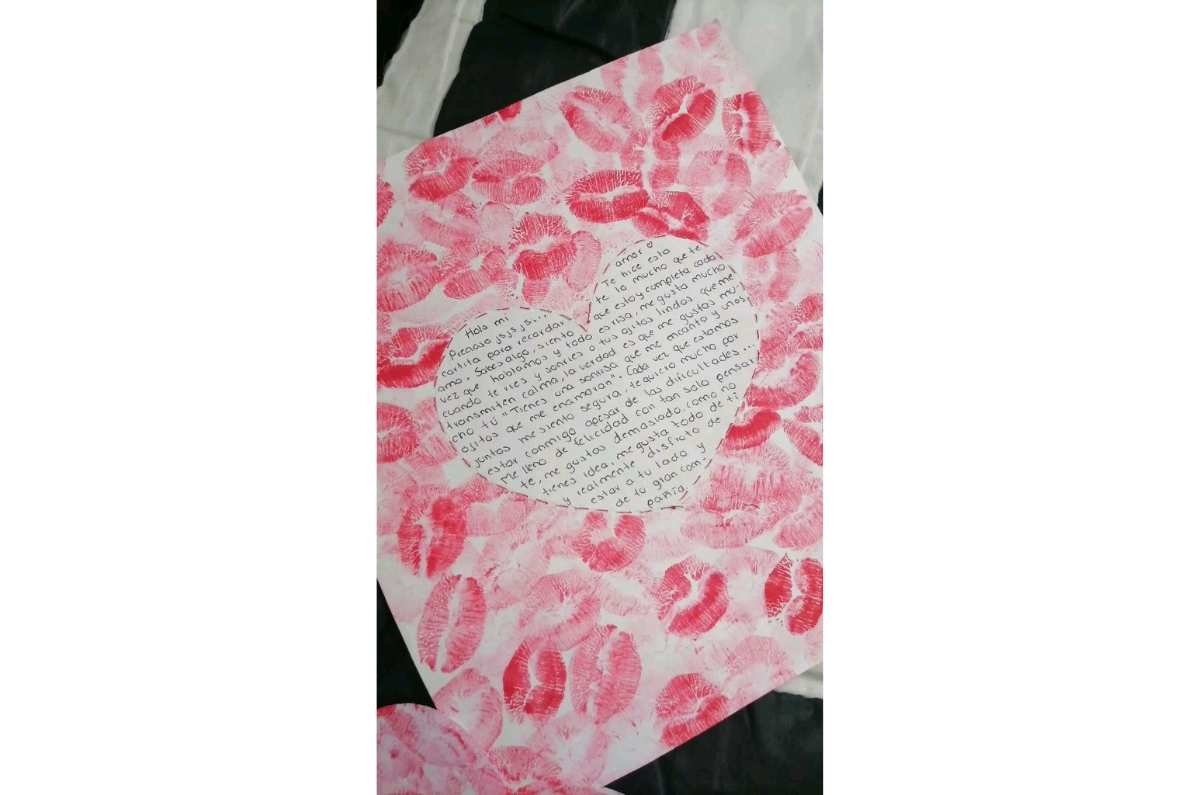 Hola mi amor ♡
Precioso jsjsjs... Te hice esta
cartita para recordar te lo mucho que te
amo. Sabes algo, siento que estoy completa cada
vez que hablamos y todo es risa, me gusta mucho
cuando te ries y sonries o tus ojitos lindos que me
transmiten calma, la verdad es que me gustas mu-
cho tú "Tienes una sonrisa que me encanta y unos
ojitos que me enamoran". Cada vez que estamos
juntos me siento segura, te quiero mucho por
estar conmigo apesar de las dificultades...
me lleno de felicidad con tan solo pensar
te, me gustas demasiado, como no
tienes idea, me gusta todo de ti
y realmente disfruto de
estar a tu lado y
de tu gran com-
pañia